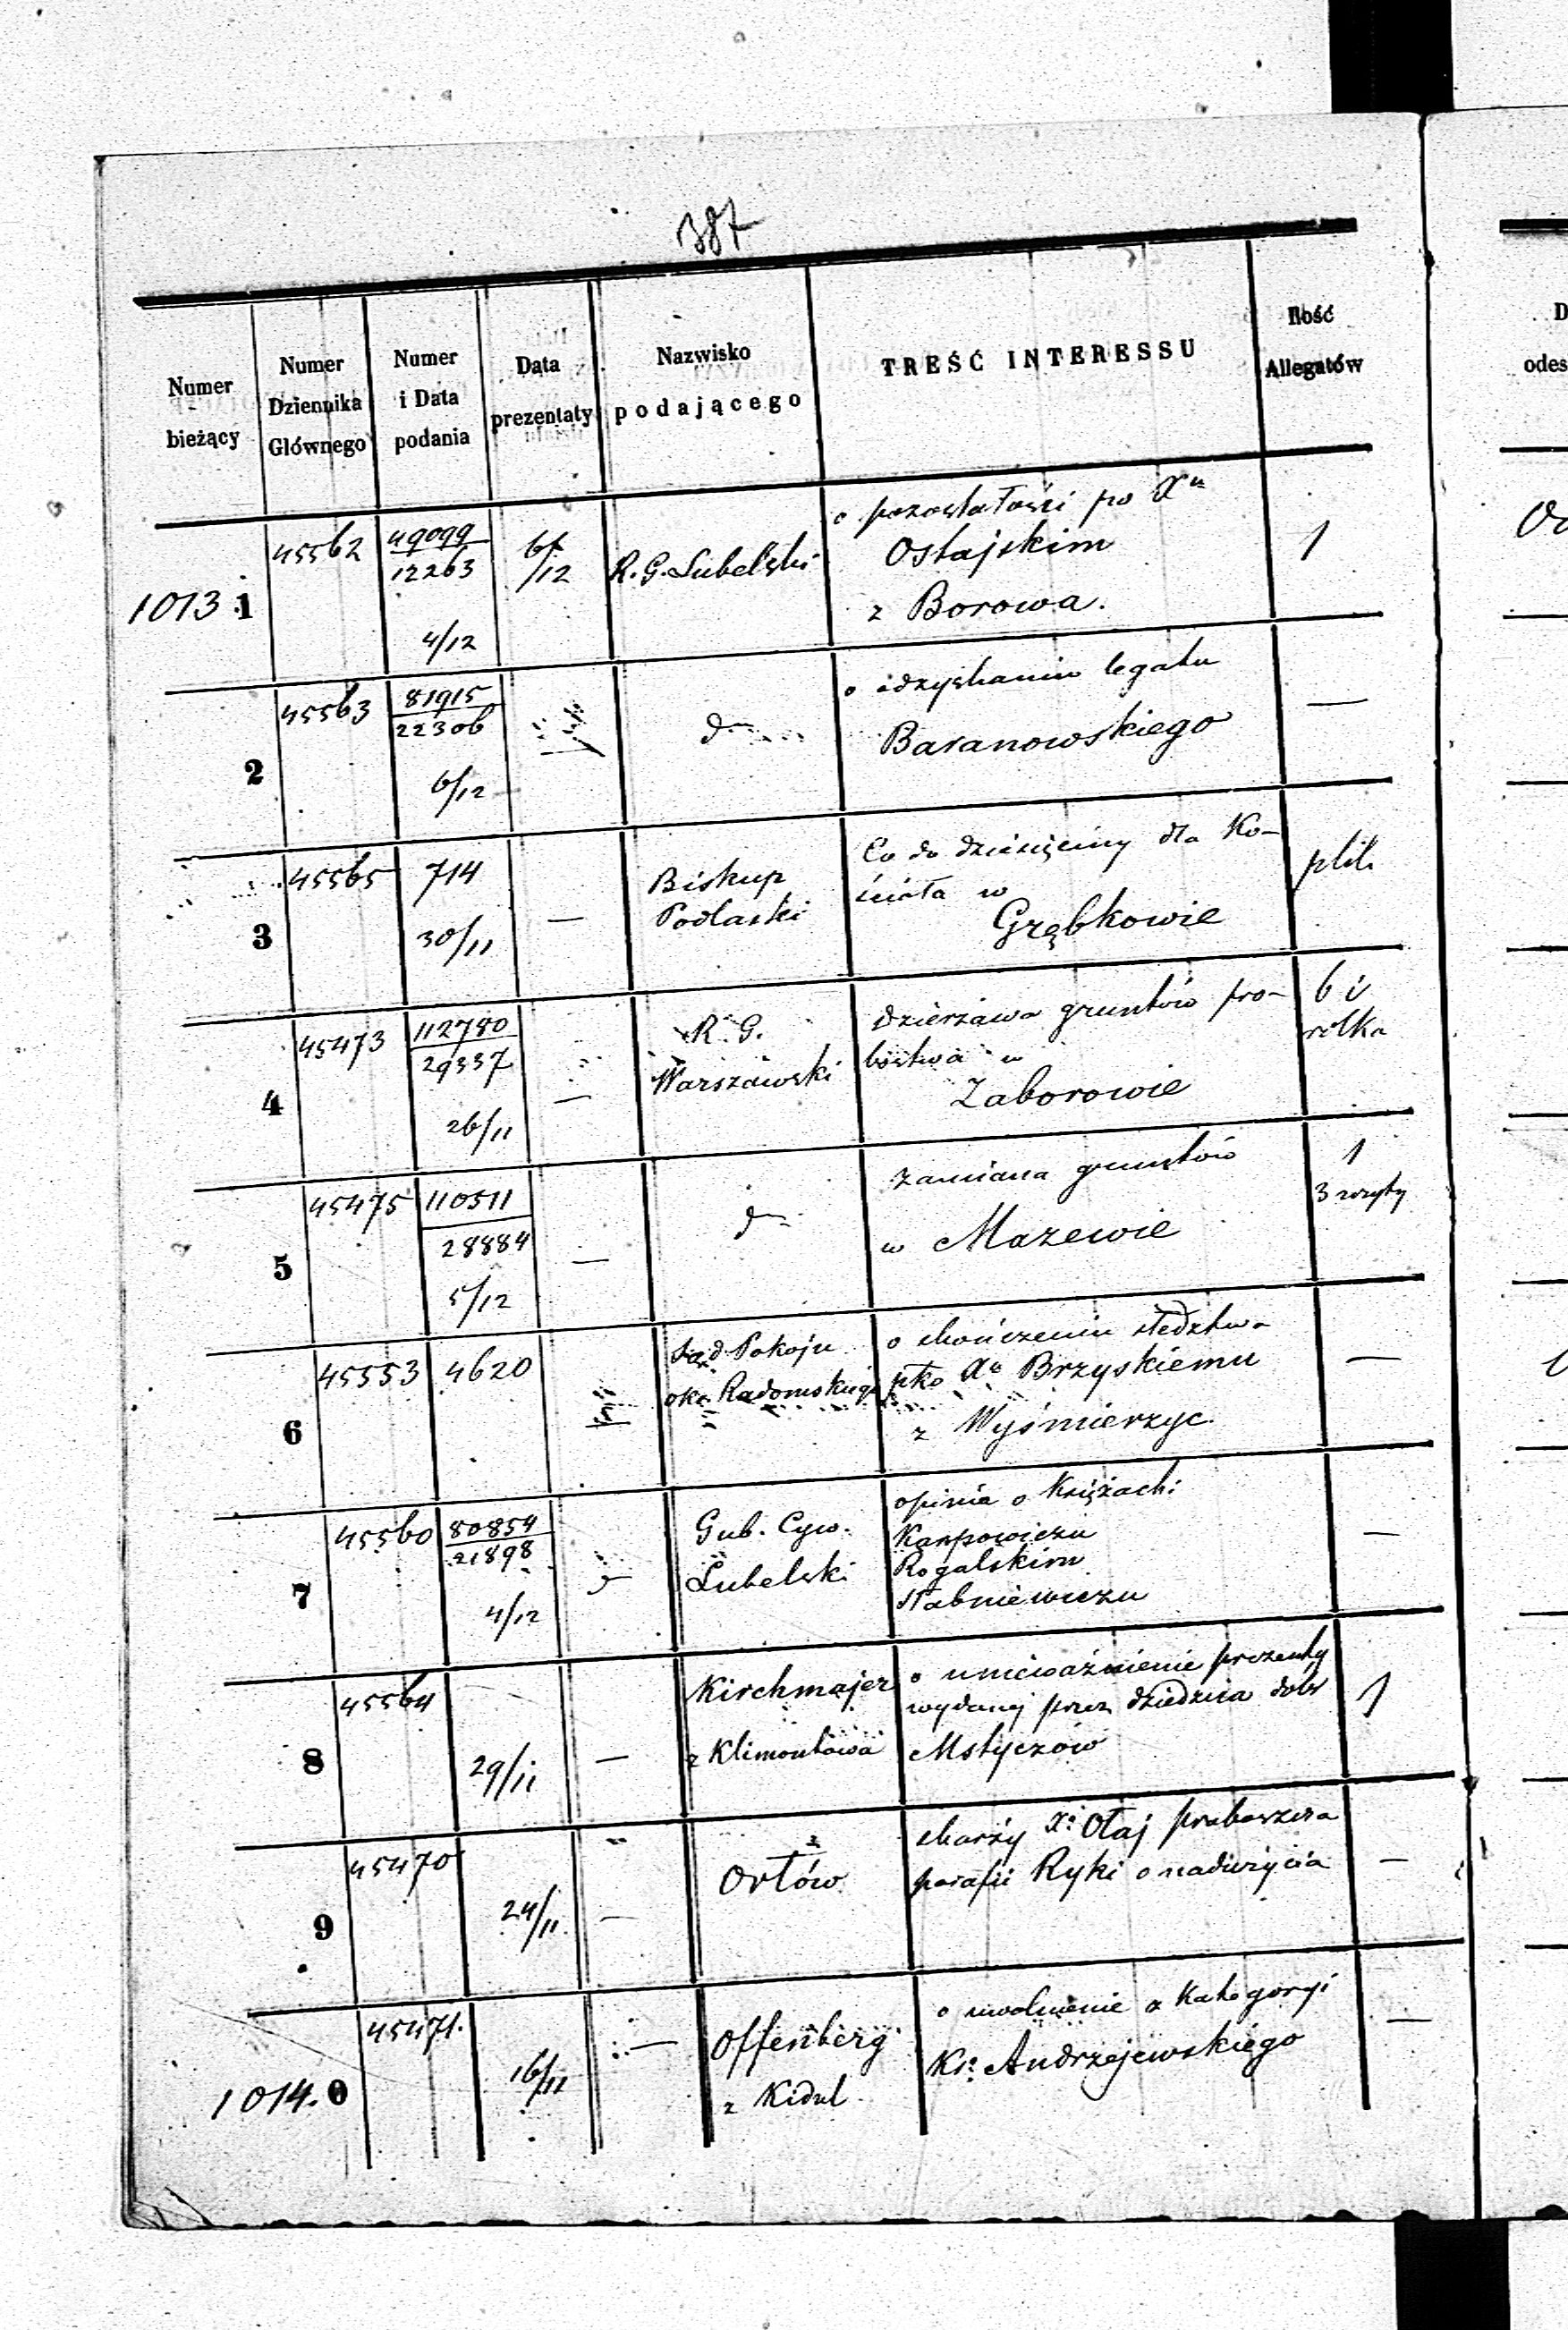 387
Numer bieżący
Numer Dziennika Głównego
Numer i Data podania
Data prezentaty
Nazwisko podającego
TREŚĆ INTERESSU
Ilość Allegatów
D
odes
1013 1
45562
49099
12263
4/12
/12
R. G. Lubelski
o pozostałości po Xu
Ostajskim
z Borowa.
1
2
45563
81915
22306
6/12
o odzyskaniu legatu
Baranowskiego
—
3
45565
714
30/11
—
Biskup
Podlaski
Co do dziesięciny dla Ko-
ścioła w
Grębkowie
plik
4
45473
112780
29337
26/11
—
R. G.
Warszawski
dzierżawa gruntów pro-
bostwa w
Zaborowie
6 i
rolka
5
45475
110511
28884
5/12
—
zamiana gruntów
w Mazewie
1
3 zszyty
6
45553
4620
Sąd Pokoju
okr. Radomskiego
o skończeniu śledztwa
pko Xu Brzyskiemu
z Wyśmierzyc.
—
7
45560
80854
21898
4/12
Gub. Cyw.
Lubelski
opinia o Księżach:
Karpowiczu
Rogalskim
Stabniewiczu
—
8
45564
29/11
—
Kirchmajer
z Klimontowa
o unieważnienie prezenty
wydanej przez dziedzica dobr
Mstyczów
1
9
45470
24/11
—
Orłów
skarży X: Otaj proboszcza
parafii Ryki o nadużycia
—
1014.0
45471.
16/11
—
Offenberg
z Kidul
o uwolnienie z Kategoryi
Ks: Andrzejewskiego
—